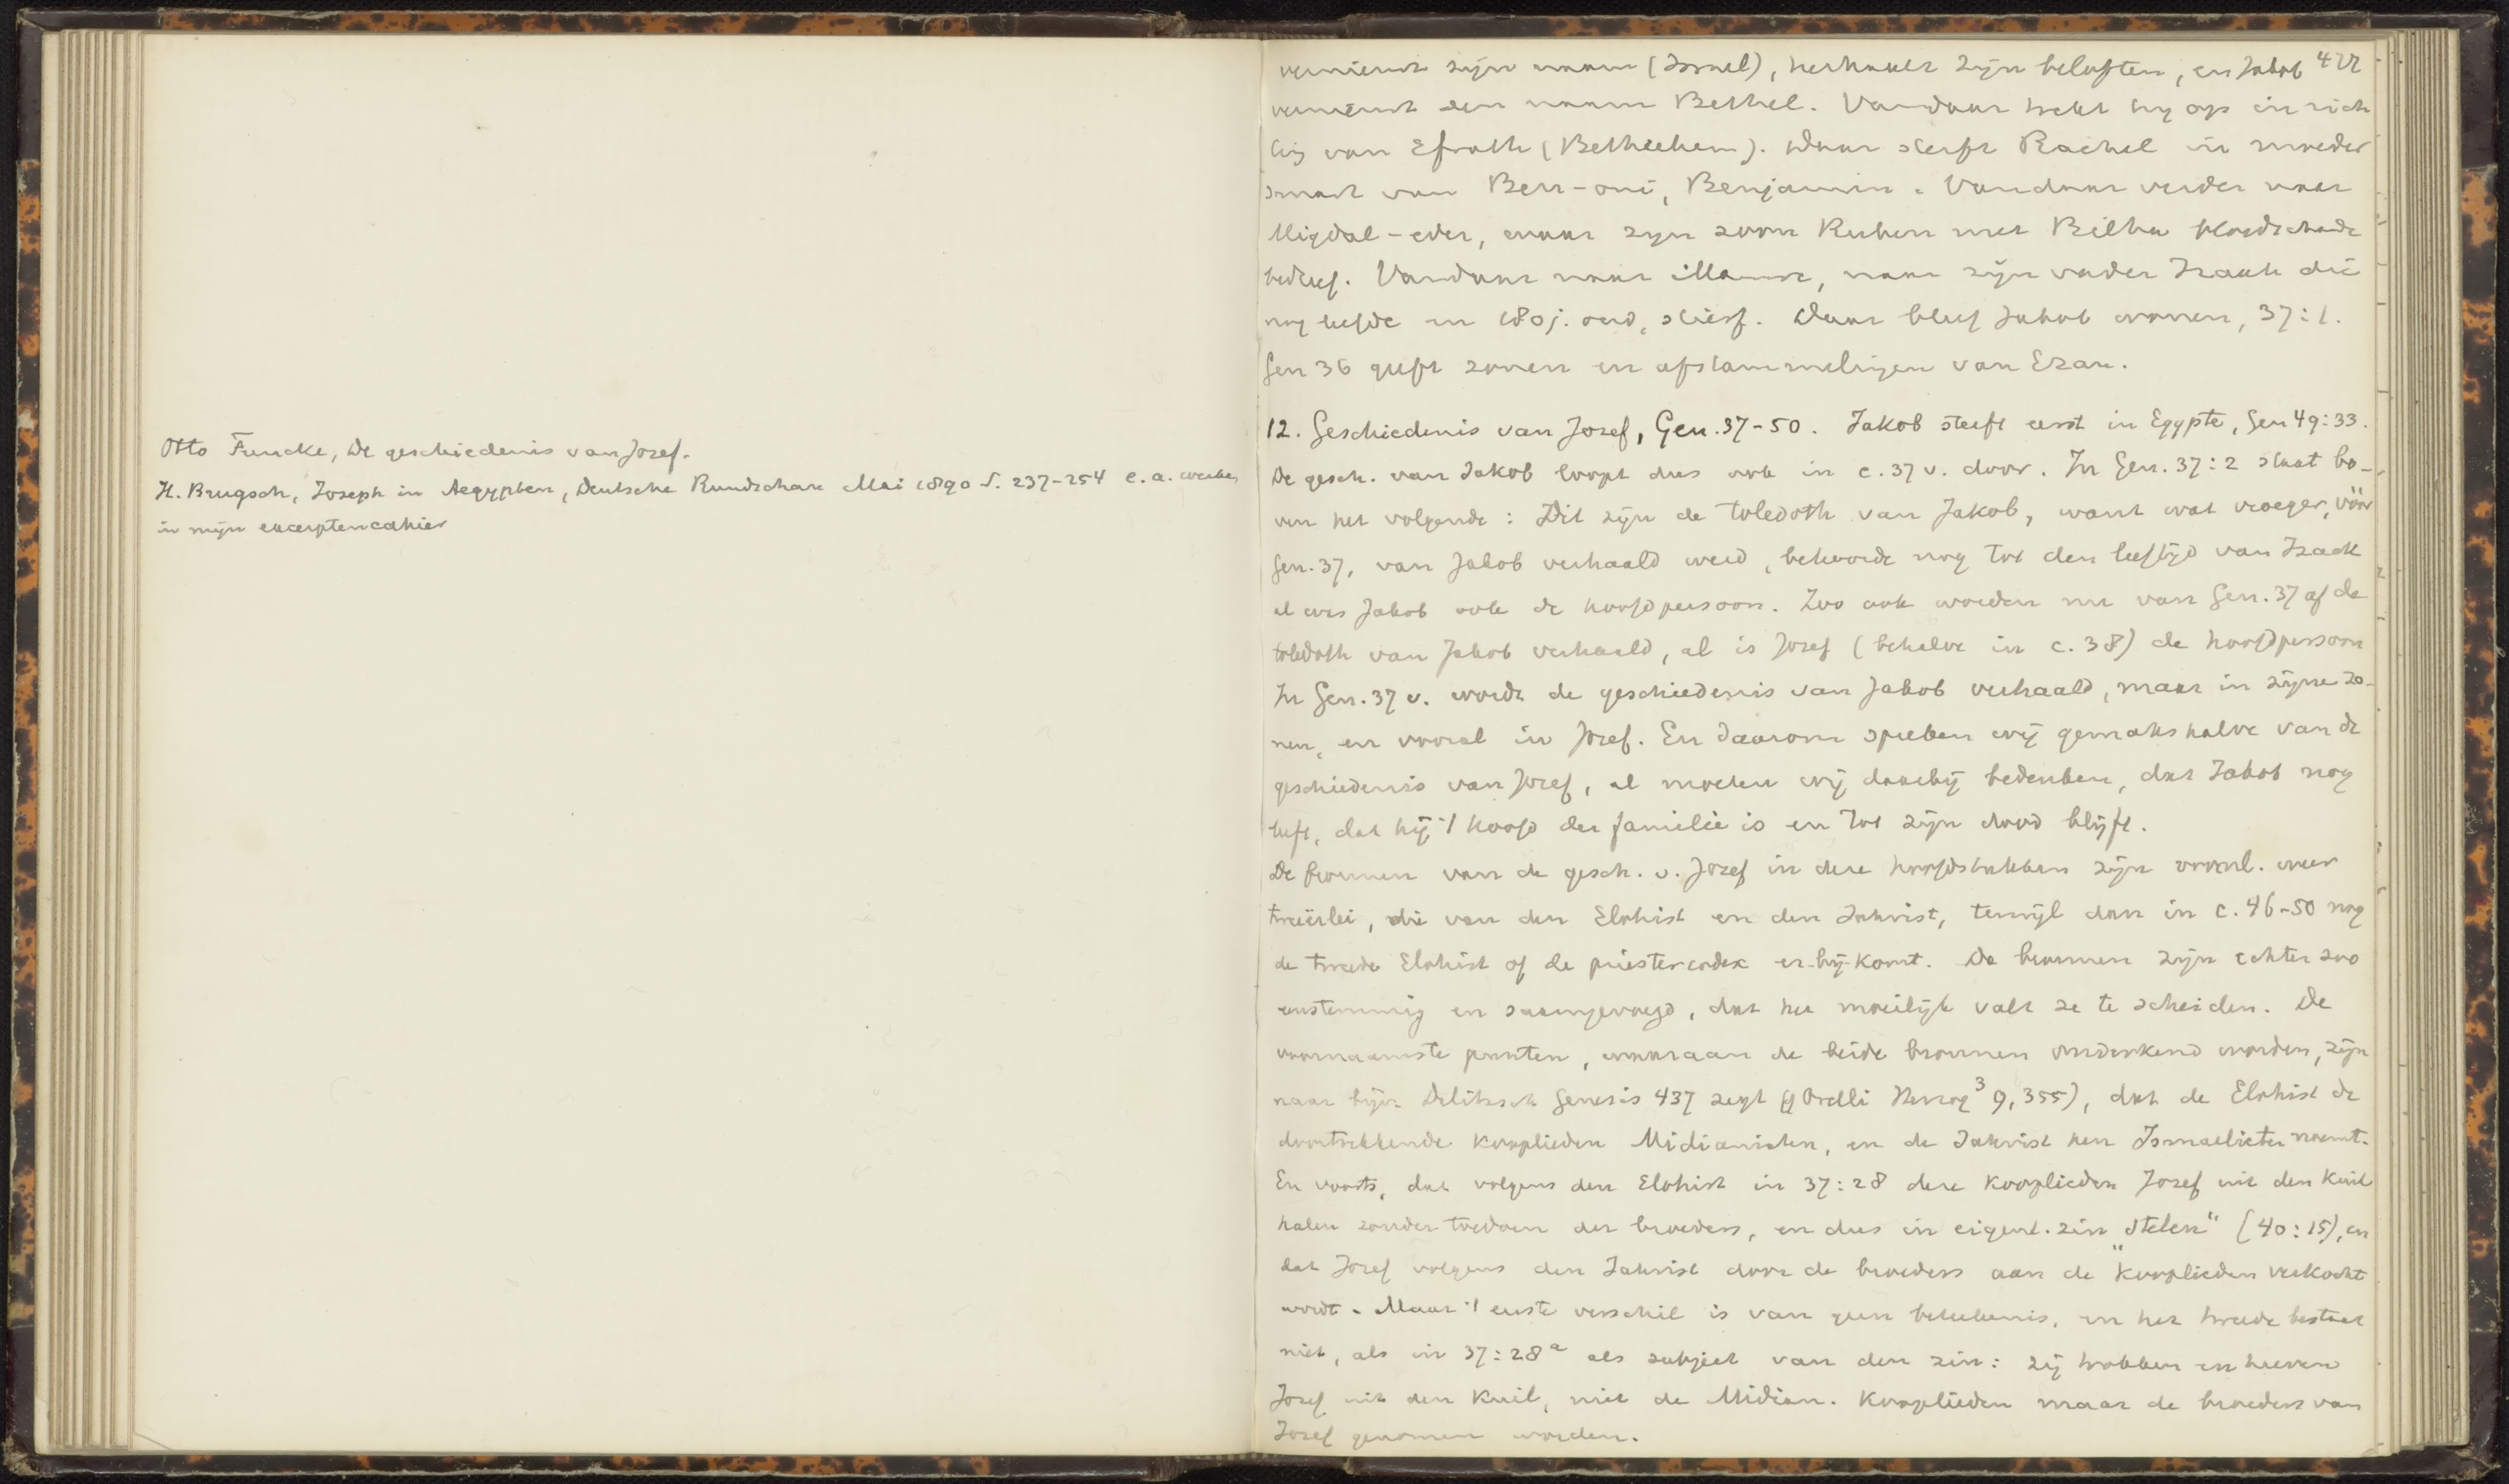 Otto Funcke, De geschiedenis van Jozef.
H. Brugsch, Joseph in Aegypten, Deutsche Rundschau Mai 1890 S. 237-254 e.a. werken
in mijn excerptencahier
vernieuwt zijn naam (Israel), herhaalt zijn beloften, en Jakob
vernieuwt den naam Bethel. Vandaar trekt hij op in rich
ting van Efrath (Bethlehem). Daar sterft Rachel in moeder
smart van Ben-oni, Benjamin. Vandaar verder naar
Migdal-eder, waar zijn zoon Ruben met Bilha bloedschande
bedreef. Vandaar naar Mamre, naar zijn vader Izaak die
nog leefde en 180 j. oud, stierf. Daar bleef Jakob wonen, 37:1.
Gen 36 geeft zonen en afstammelingen van Ezau.
12. Geschiedenis van Jozef, Gen. 37-50. Jakob sterft eerst in Egypte, Gen 49:33.
De gesch. van Jakob loopt dus ook in c. 37 v. door. In Gen. 37:2 staat bo-
ven het volgende: Dit zijn de toledoth van Jakob, want wat vroeger, vóór
Gen. 37, van Jakob verhaald werd, behoorde nog tot den leeftijd van Izaak
al was Jakob ook de hoofdpersoon. Zoo ook worden nu van Gen. 37 af de
toledoth van Jakob verhaald, al is Jozef (behalve in c. 38) de hoofdpersoon
In Gen. 37 v. wordt de geschiedenis van Jakob verhaald, maar in zijne zo-
nen, en vooral in Jozef. En daarom spreken wij gemakshalve van de
geschiedenis van Jozef, al moeten wij daarbij bedenken, dat Jakob nog
leeft, dat hij 't hoofd der familie is en tot zijn dood blijft.
De bronnen van de gesch. v. Jozef in deze hoofdstukken zijn voornl. weer
tweeërlei, die van den Elohist en den Jahvist, terwijl dan in c. 46-50 nog
de tweede Elohist of de priestercodex er-bij-komt. De bronnen zijn echter zoo
eenstemmig en saamgevoegd, dat het moeilijk valt ze te scheiden. De
voornaamste punten, waaraan de beide bronnen onderkend worden, zijn
naar bijv. Delitzsch Genesis 437 zegt (cf Orelli Herzog³ 9, 355), dat de Elohist de
doortrekkende kooplieden Midianieten, en de Jahvist hen Ismaelieten noemt.
En voorts, dat volgens den Elohist in 37:28 deze kooplieden Jozef uit den kuil
halen zonder toedoen der broeders, en dus in eigenl. zin "stelen" (40:15), en
dat Jozef volgens den Jahvist door de broeders aan de kooplieden verkocht
wordt. Maar 't eerste verschil is van geen beteekenis, en het tweede bestaat
niet, als in 37:28ᵃ als subject van den zin: zij trokken en hieven
Jozef uit den kuil, niet de Midian. kooplieden maar de broeders van
Jozef genomen worden.